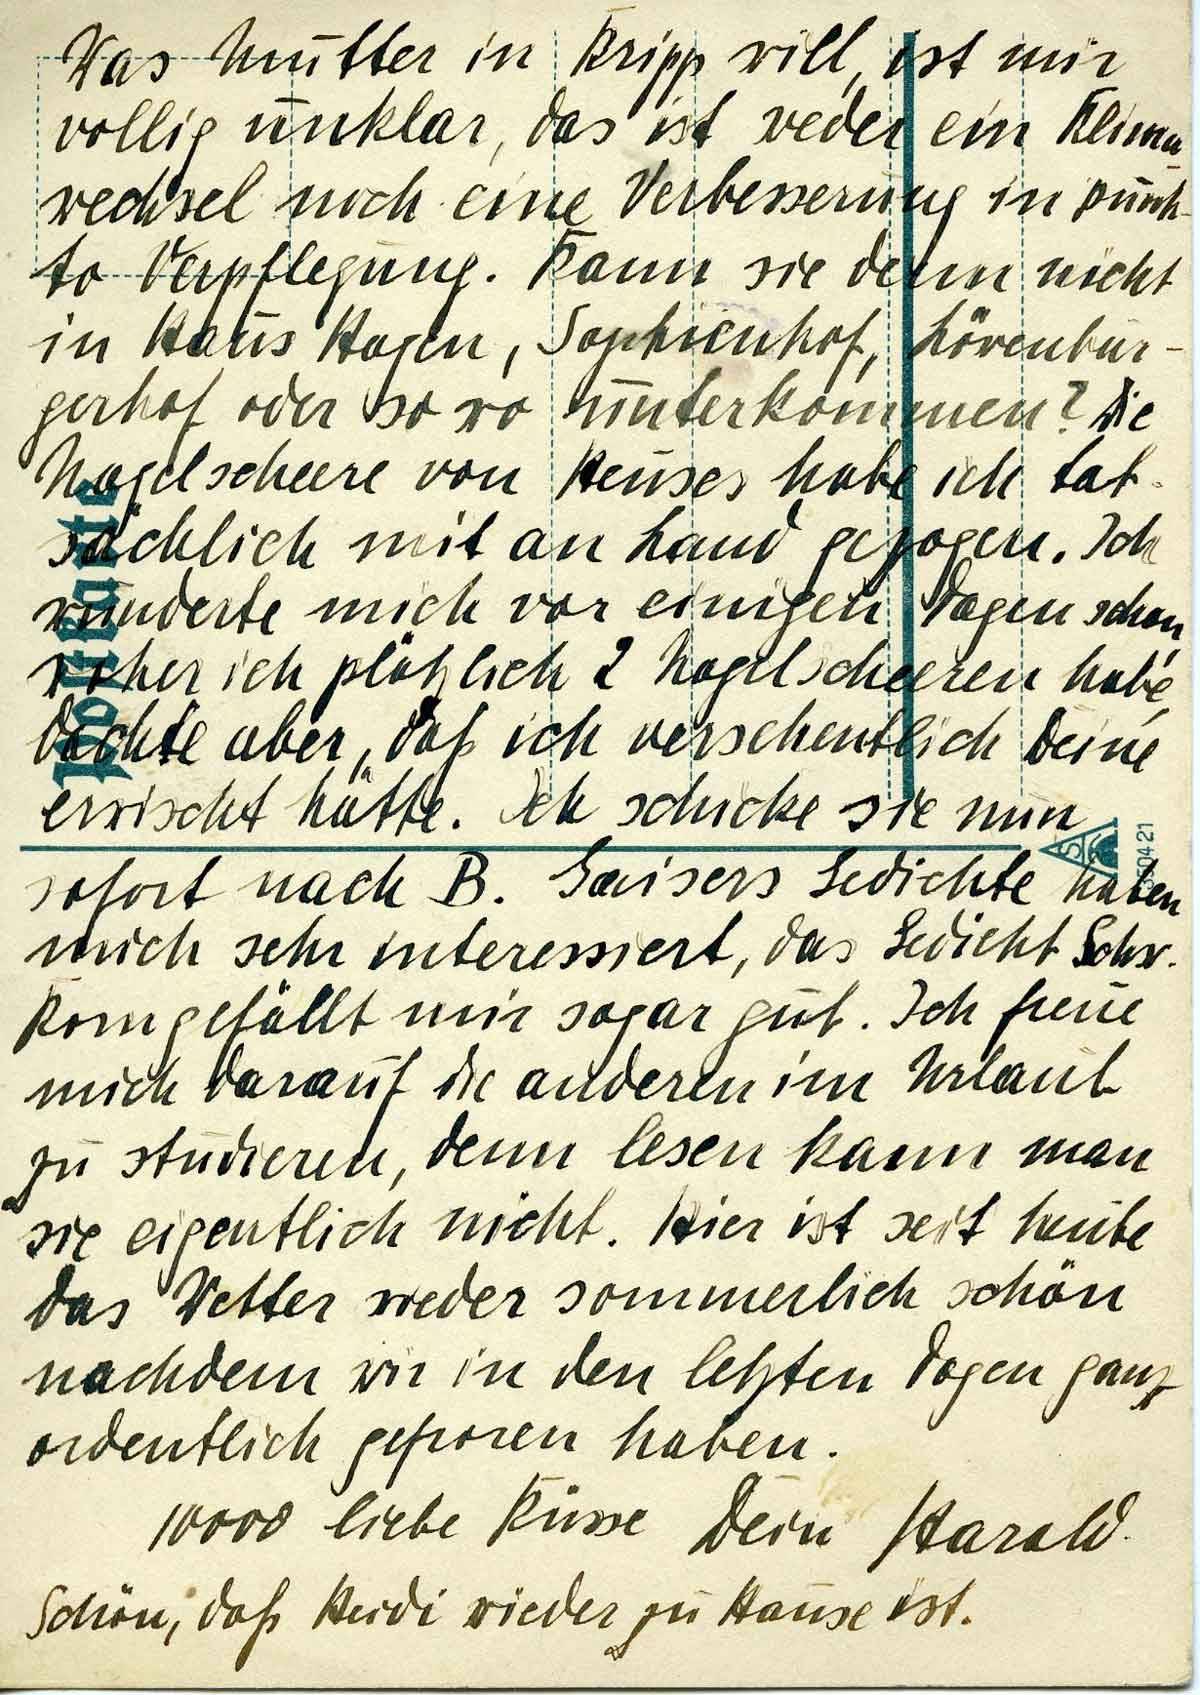 Was Mutter in Kripp will, ist mir
völlig unklar, das ist weder ein Klima
wechsel noch eine Verbesserung in punk-
to Verpflegung. Kann sie denn nicht
in Haus Hagen, Sophienhof, Lövenbur-
gerhof oder so wo unterkommen? Die
Nagelscheere von Heuses habe ich tat-
sächlich mit an Land gezogen. Ich
wunderte mich vor einigen Tagen schon,
woher ich plötzlich 2 Nagelscheeren habe,
dachte aber, daß ich versehentlich Deine
erwischt hätte. Ich schicke sie nun
sofort nach B. Gaisers Gedichte haben
mich sehr interessiert, das Gedicht Schw.
Korn gefällt mir sogar gut. Ich freue
mich darauf die anderen im Urlaub
zu studieren, denn lesen kann man
sie eigentlich nicht. Hier ist seit heute
das Wetter wieder sommerlich schön
nachdem wir in den letzten Tagen ganz
ordentlich gefroren haben.
10000 liebe Küsse Dein Harald.
Schön, daß Heidi wieder zu Hause ist.
Postkarte